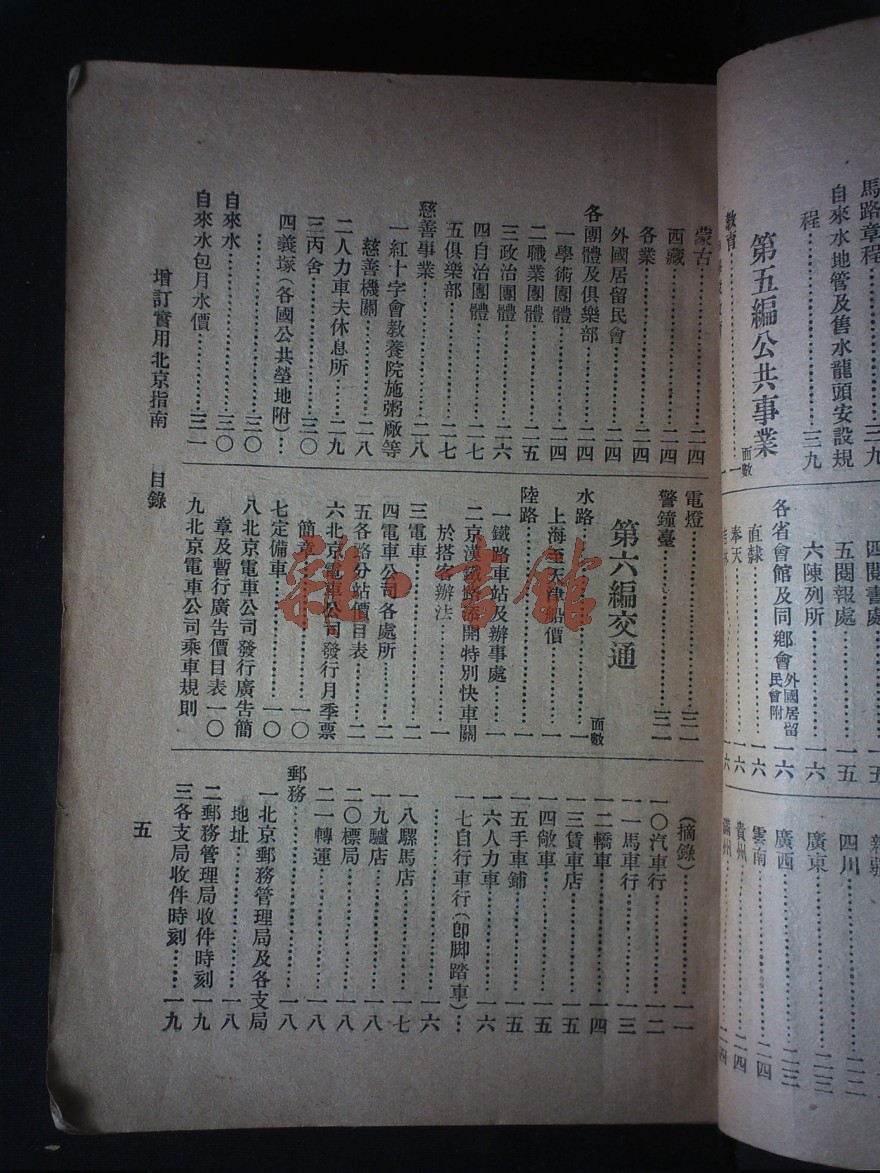 馬路章程……三九
自來水地管及售水龍頭安設規
程……三九
第五編公共事業
面數
教育……一
四閱書處
五閱報處……一五
六陳列所……一六
各省會館及同鄉會外國居留民會附
直隸……一六
奉天……一六
四川
廣東……二三
廣西……二三
雲南……二四
貴州……二四
滿州……二四
蒙古……二四
西藏……二四
各業……二四
外國居留民會……二四
各團體及俱樂部
一學術團體……二四
二職業團體……二五
三政治團體……二六
四自治團體……二七
五俱樂部……二七
慈善事業……二八
一紅十字會教養院施粥廠等
慈善機關……二八
二人力車夫休息所……二九
三丙舍……三〇
四義塚(各國公共塋地附)…
……三〇
自來水……三〇
自來水包月水價……三一
電燈……三一
警鐘臺……三一
第六編交通
面數
水路……一
上海至天津船價……一
陸路
一鐵路車站及辦事處……一
二京漢鐵路添開特別快車關
於搭客辦法……一
三電車……二
四電車公司各處所……二
五各路分站價目表……二
六北京電車公司發行月季票
簡章……一〇
七定備車……一〇
八北京電車公司發行廣告簡
章及暫行廣告價目表一〇
九北京電車公司乘車規則
(摘錄)……一一
一〇汽車行……一二
一一馬車行……一三
一二轎車……一四
一三賃車店……一五
一四敞車……一五
一五手車鋪……一五
一六人力車……一六
一七自行車行(卽脚踏車)…
……一六
一八騾馬店……一七
一九驢店……一八
二〇標局……一八
二一轉運……一八
郵務……一八
一北京郵務管理局及各支局
地址……一八
二郵務管理局收件時刻一九
三各支局收件時刻……一九
增訂實用北京指南 目錄
五
雜·書館